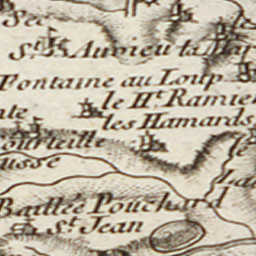 Sec
St. Auvieu la Mar
Fontaine au Loup
le Ht. Ramie
les Hamards
ourteille
usse
le
La
Baillée Pouchard
St. Jean